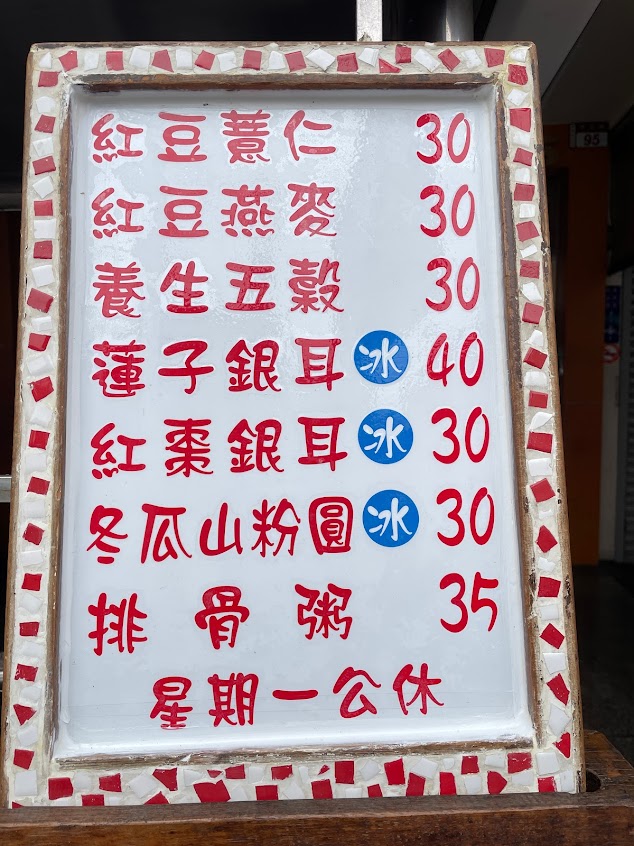 紅豆薏仁 30
紅豆燕麥 30
養生五穀 30
蓮子銀耳 冰 40
紅棗銀耳 冰 30
冬瓜山粉圓 冰 30
排骨粥 35
星期一公休
95